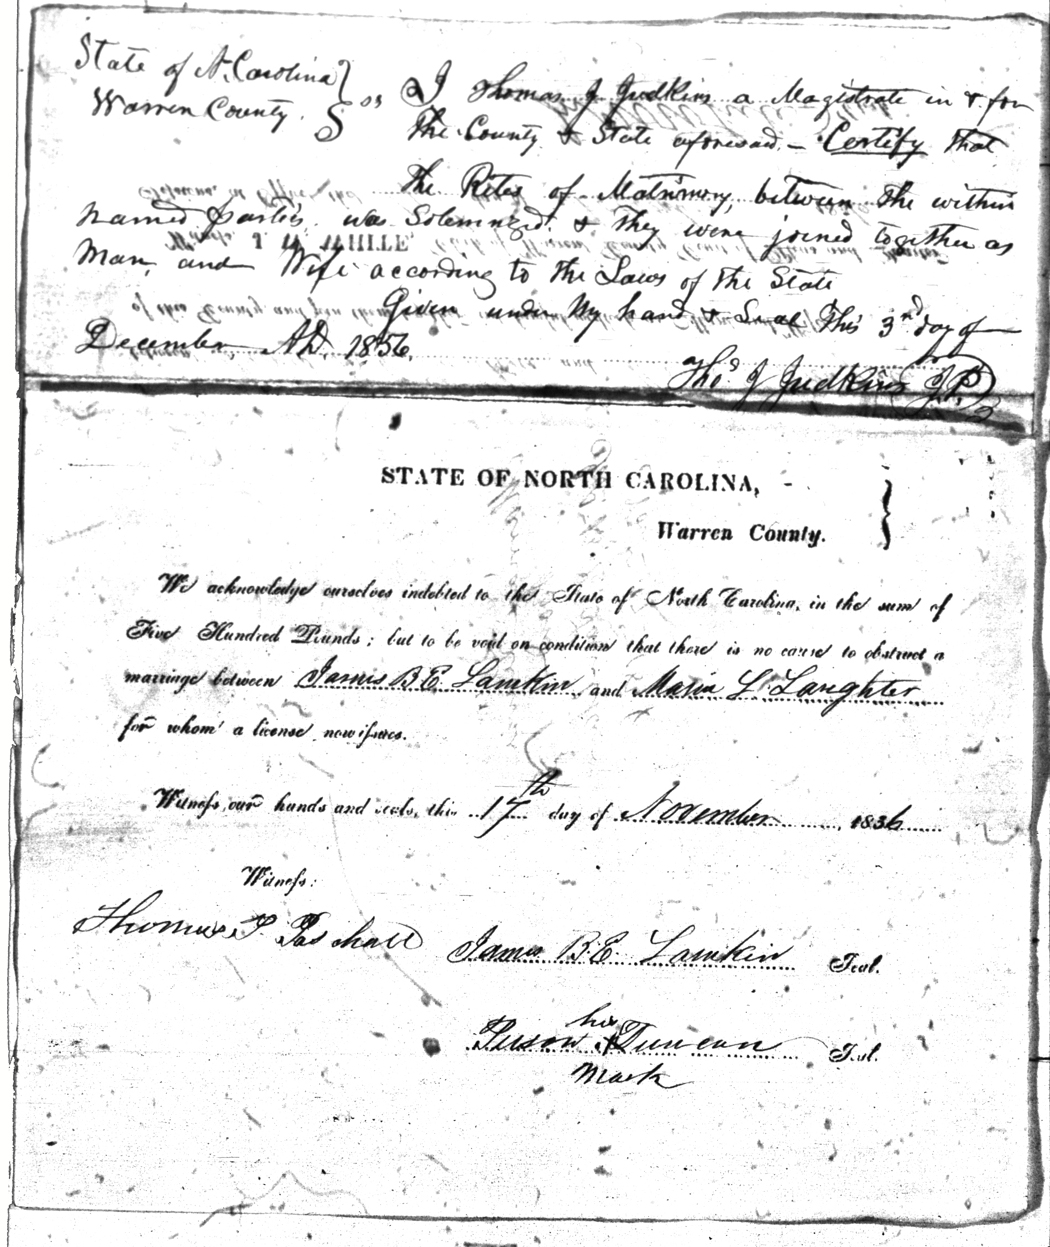 State of N. Carolina }
Warren County. } SS I Thomas J Judkins a Magistrate in & for
The County & State aforesaid – Certify that
The Rites of Matrimony, between the within
named parties was Solemnized. & they were joined together as
Man, and Wife according to the Laws of the State
Given under My hand & Seal This 3rd day of
December A.D. 1856.
Thos J Judkins J.P.
STATE OF NORTH CAROLINA, }
Warren County.
We acknowledge ourselves indebted to the State of North Carolina, in the sum of
Five Hundred Pounds; but to be void on condition that there is no cause to obstruct a
marriage between James B. E. Lamkin and Maria L. Laughter
for whom a license now issues.
Witness our hands and seals, this 17th day of November 1856
Witness:
Thomas P Paschall
James B. E. Lamkin Seal.
his
Person X Duncan Seal.
Mark